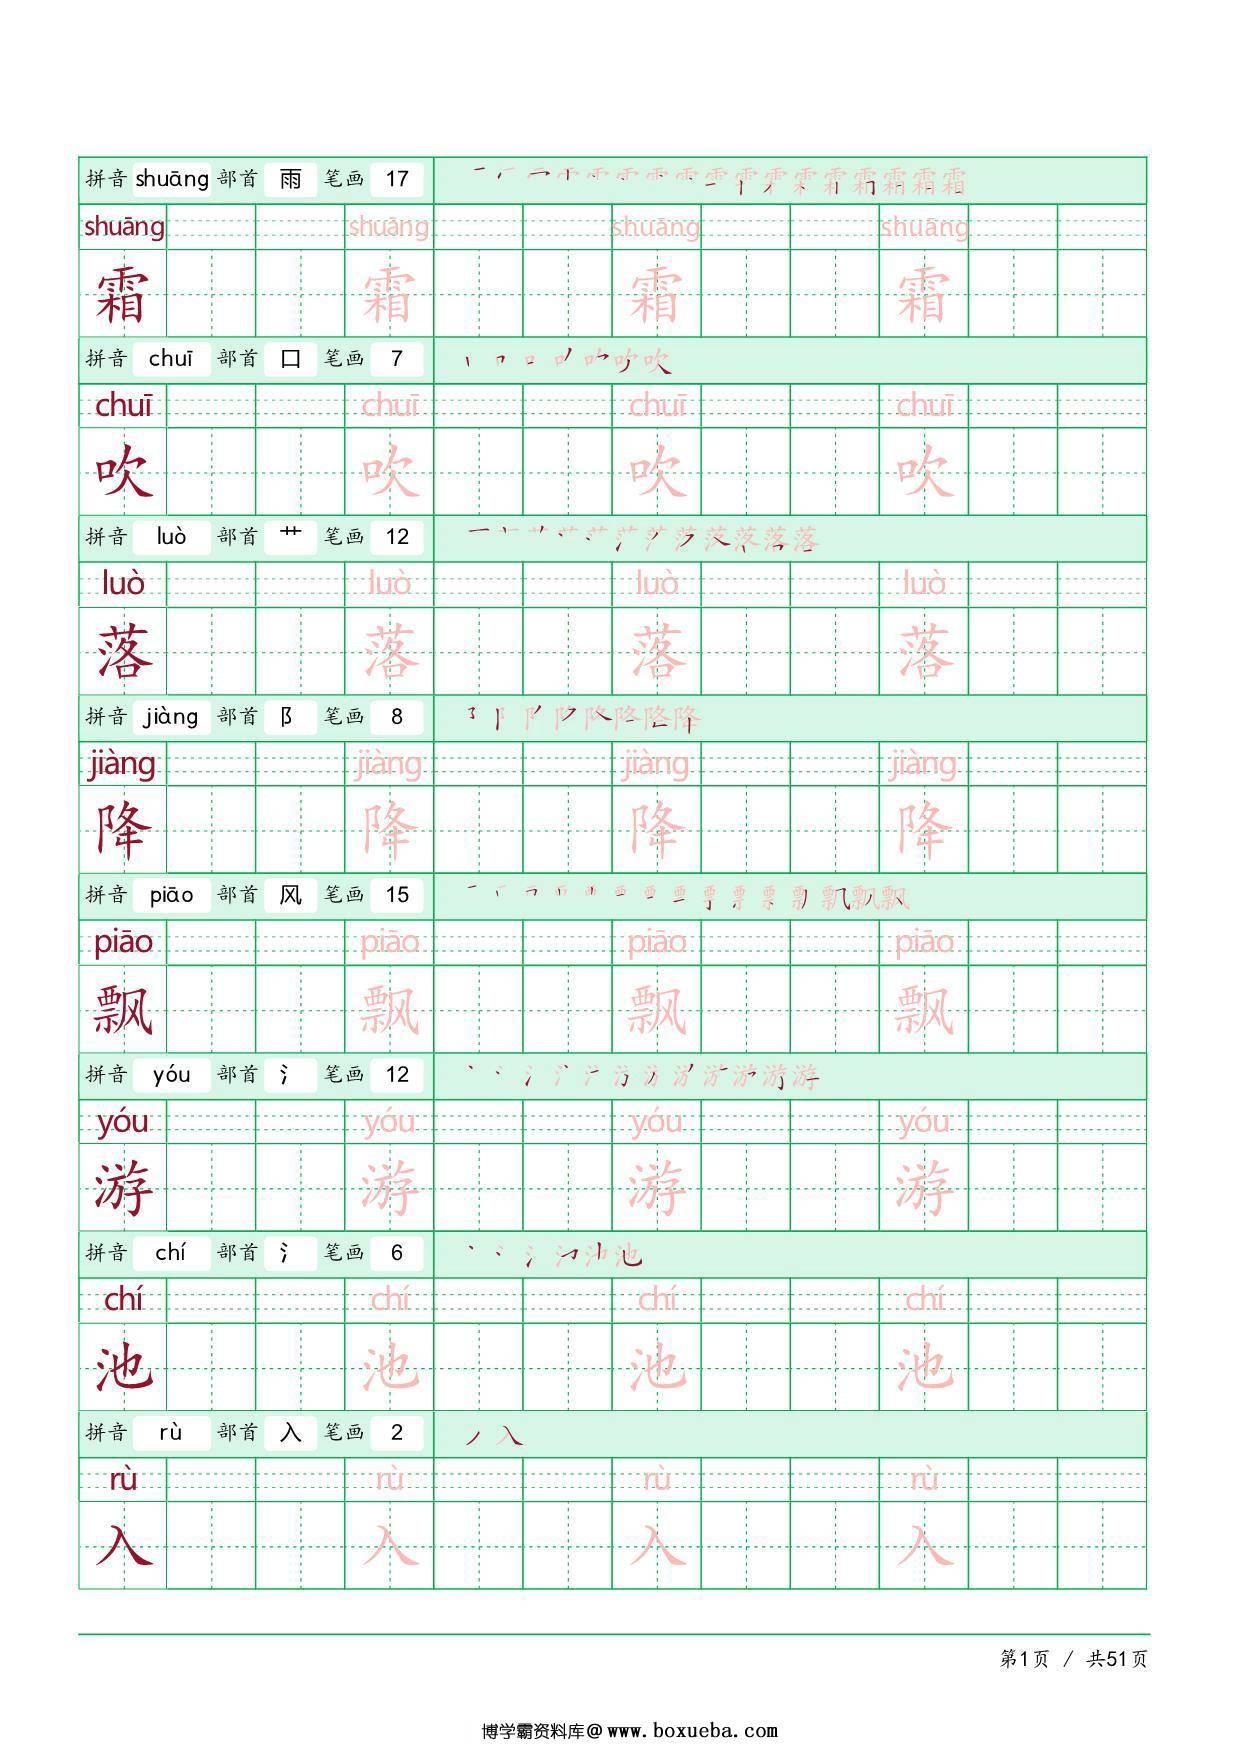 拼音 shuāng 部首 雨 笔画 17
shuāng shuāng shuāng shuāng
霜 霜 霜 霜
拼音 chuī 部首 口 笔画 7
chuī chuī chuī chuī
吹 吹 吹 吹
拼音 luò 部首 艹 笔画 12
luò luò luò luò
落 落 落 落
拼音 jiàng 部首 阝 笔画 8
jiàng jiàng jiàng jiàng
降 降 降 降
拼音 piāo 部首 风 笔画 15
piāo piāo piāo piāo
飘 飘 飘 飘
拼音 yóu 部首 氵 笔画 12
yóu yóu yóu yóu
游 游 游 游
拼音 chí 部首 氵 笔画 6
chí chí chí chí
池 池 池 池
拼音 rù 部首 入 笔画 2
rù rù rù rù
入 入 入 入
第1页 / 共51页
博学霸资料库@www.boxueba.com